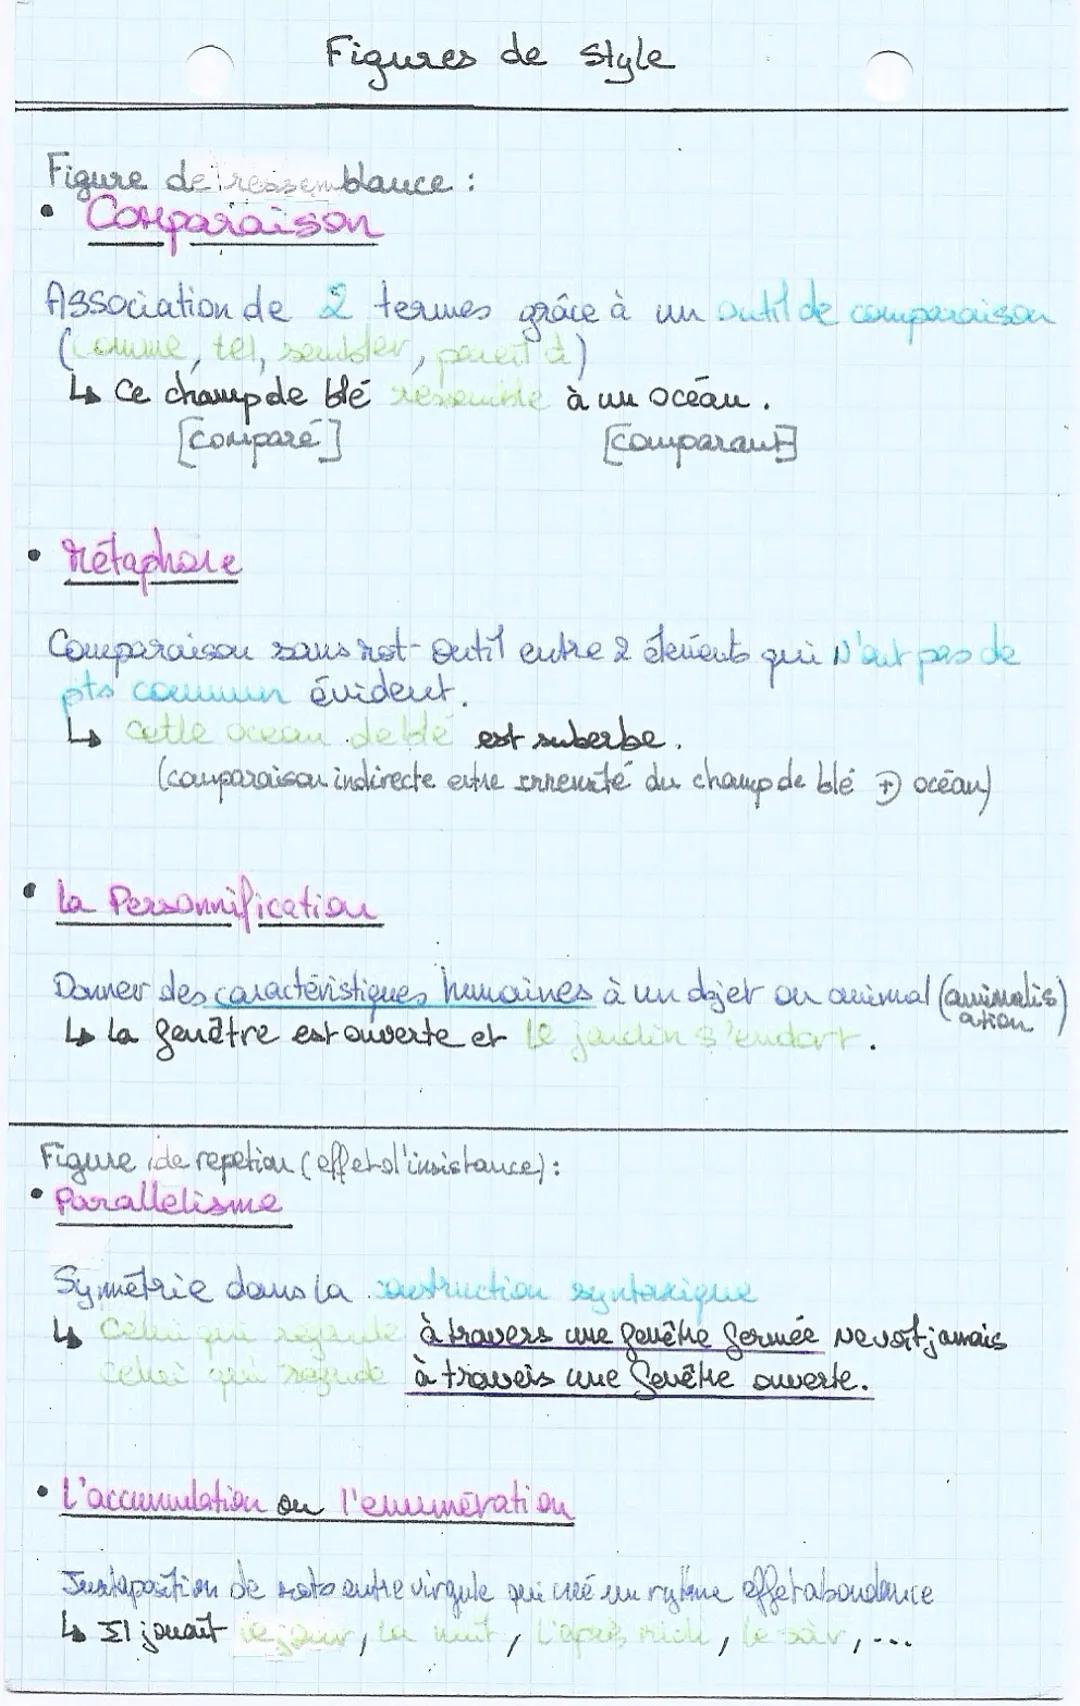 Figures de style
Figure de ressemblance :
• Comparaison
Association de 2 termes grâce à un outil de comparaison
(comme, tel, sembler, pareil à)
↳ Ce champ de blé ressemble à un océan.
[comparé] [comparant]
• Métaphore
Comparaison sans mot-outil entre 2 éléments qui N'ont pas de
pts commun évident.
↳ Cette océan de blé est suberbe.
(comparaison indirecte entre immensité du champ de blé et océan)
• la Personnification
Donner des caractéristiques humaines à un objet ou animal (animalis
ation)
↳ La fenêtre est ouverte et le jardin s'endort.
Figure de repetion (effet d'insistance) :
• Parallelisme
Symétrie dans la construction syntaxique
↳ Celui qui regarde à travers une fenêtre fermée ne voit jamais
Celui qui regarde à travers une fenêtre ouverte.
• L'accumulation ou l'enumération
Juxtaposition de mots entre virgule qui créé un rytme effet abondance
↳ Il jouait le jour, la nuit, l'après midi, le soir, ...